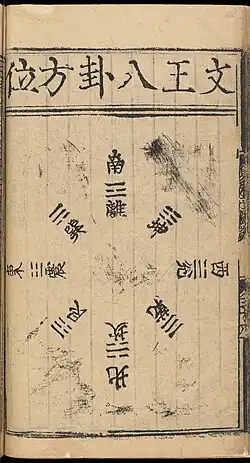 文王八卦方位
南
離
巽
坤
東 震
兌 西
艮
乾
坎
北